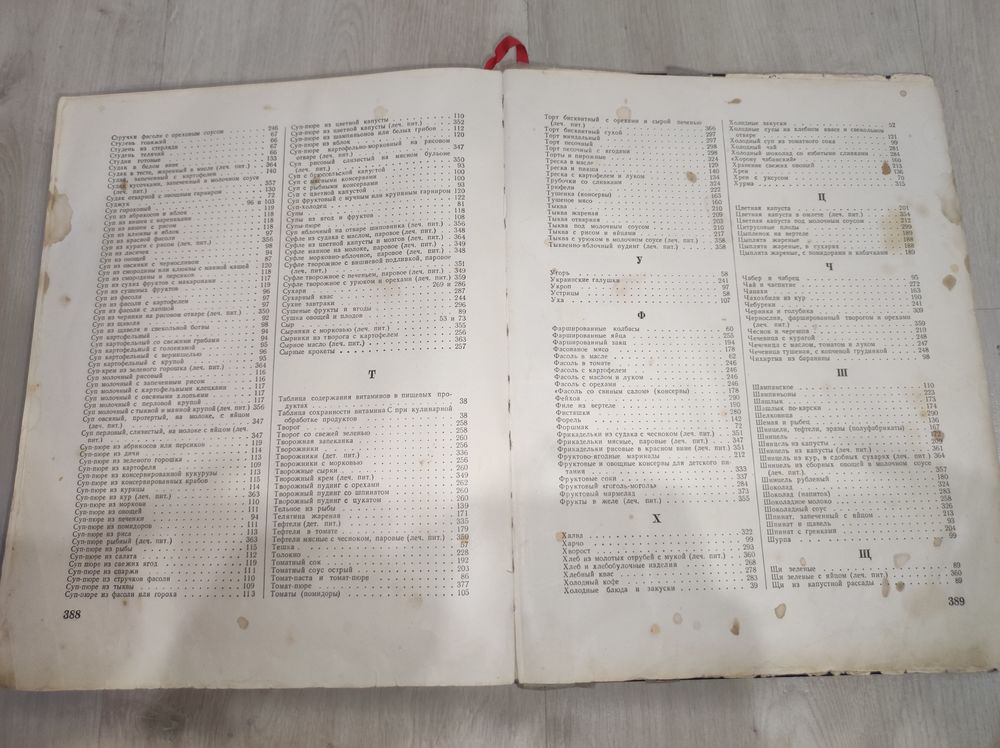 Стручки фасоли с ореховым соусом 246
Студень говяжий 67
Студень из стерляди 66
Студень телячий 67
Студни готовые 66
Судак в белом вине 133
Судак в тесте, жаренный в масле (леч. пит.) 364
Судак, запеченный с картофелем 140
Судак кусочками, запеченный в молочном соусе
(леч. пит.) 357
Судак отварной с овощным гарниром 130
Суджук 72
Суп гороховый 96 и 103
Суп из абрикосов и яблок 119
Суп из вишен с варениками 118
Суп из вишен с рисом 118
Суп из клюквы и яблок 118
Суп из красной фасоли 97
Суп из кураги с рисом (леч. пит.) 356
Суп из лисичек 98
Суп из овощей 94
Суп из овсянки с черносливом 97
Суп из смородины или клюквы с манной кашей 120
Суп из смородины и персиков 118
Суп из сухих фруктов с макаронами 117
Суп из сушеных фруктов 119
Суп из фасоли 96
Суп из фасоли с картофелем 96
Суп из фасоли с лапшой 97
Суп из черники на рисовом отваре (леч. пит.) 350
Суп из щавеля 92
Суп из щавеля и свекольной ботвы 98
Суп картофельный 94
Суп картофельный со свежими грибами 94
Суп картофельный с солониной 95
Суп картофельный с вермишелью 96
Суп картофельный с крупой 95
Суп-крем из зеленого горошка (леч. пит.) 364
Суп молочный рисовый 116
Суп молочный с запеченным рисом 116
Суп молочный с картофельными клецками 117
Суп молочный с овсяными хлопьями 117
Суп молочный с перловой крупой 117
Суп молочный с тыквой и манной крупой (леч. пит.) 356
Суп овсяный, протертый, на молоке с яйцом
(леч. пит.) 347
Суп перловый, слизистый, на молоке с яйцом (леч.
пит.) 347
Суп-пюре из абрикосов или персиков 119
Суп-пюре из дичи 114
Суп-пюре из зеленого горошка 113
Суп-пюре из картофеля 109
Суп-пюре из консервированной кукурузы 113
Суп-пюре из консервированных крабов 115
Суп-пюре из курицы 114
Суп-пюре из кур (леч. пит.) 363
Суп-пюре из моркови 110
Суп-пюре из овощей 111
Суп-пюре из печенки 94
Суп-пюре из помидоров 111
Суп-пюре из риса 113
Суп-пюре рыбный (леч. пит.) 363
Суп-пюре из рыбы 115
Суп-пюре из салата 112
Суп-пюре из свежих ягод 119
Суп-пюре из спаржи 111
Суп-пюре из стручков фасоли 110
Суп-пюре из тыквы 109
Суп-пюре из фасоли или гороха 113
388
Суп-пюре из цветной капусты 110
Суп-пюре из цветной капусты (леч. пит.) 352
Суп-пюре из шампиньонов или белых грибов 112
Суп-пюре из яблок 120
Суп-пюре картофельно-морковный на рисовом
отваре (леч. пит.) 347
Суп рисовый слизистый на мясном бульоне
(леч. пит.) 350
Суп с брюссельской капустой 93
Суп с мясными консервами 100
Суп с рыбными консервами 100
Суп с цветной капустой 93
Суп фруктовый с мучным или крупяным гарниром 120
Суп-холодец 122
Супы 81
Супы из ягод и фруктов 118
Супы-пюре 108
Суп яблочный на отваре шиповника (леч. пит.) 350
Суфле из судака с маслом, паровое (леч. пит.) 348
Суфле из цветной капусты и мозгов (леч. пит.) 364
Суфле манное на молоке, паровое (леч. пит.) 349
Суфле морковно-яблочное, паровое (леч. пит.) 348
Суфле творожное с вишневой подливкой, паровое
(леч. пит.) 351
Суфле творожное с печеньем, паровое (леч. пит.) 349
Суфле творожное с урюком и орехами (леч. пит.) 359
Сухари 269 и 286
Сухарный квас 287
Сухие завтраки 244
Сушеные фрукты и ягоды 296
Сушка овощей и плодов 89
Сыр 53 и 73
Сырники с морковью (леч. пит.) 355
Сырники из творога с картофелем 256
Сырное масло (леч. пит.) 363
Сырные крокеты 257
Т
Таблица содержания витаминов в пищевых про-
дуктах 38
Таблица сохранности витамина С при кулинарной
обработке продуктов 38
Творог 258
Творог со свежей зеленью 258
Творожная запеканка 260
Творожники 256
Творожники (дет. пит.) 336
Творожники с морковью 256
Творожные сырки 260
Творожный крем (леч. пит.) 349
Творожный пудинг с орехами 262
Творожный пудинг со шпинатом 260
Творожный пудинг с цукатом 260
Тельное из рыбы 139
Телятина жареная 171
Тефтели (дет. пит.) 335
Тефтели в томате 179
Тефтели мясные с чесноком, паровые (леч. пит.) 350
Тешка 67
Толокно 228
Томатный сок 192
Томатный соус острый 203
Томат-паста и томат-пюре 86
Томат-пюре 377
Томаты (помидоры) 105
Торт бисквитный с орехами и сырой печенью
(леч. пит.) 360
Торт бисквитный сухой 297
Торт миндальный 297
Торт песочный 297
Торт песочный с ягодами 298
Торты и пирожные 324
Треска в масле 129
Треска и пикша 129
Треска с картофелем и луком 140
Трубочки со сливками 134
Трюфели 324
Тушенка (консервы) 222
Тушеное мясо 163
Тыква 165
Тыква жареная 210
Тыква отварная 209
Тыква под молочным соусом 203
Тыква с рисом и яйцами 210
Тыква с урюком в молочном соусе (леч. пит.) 358
Тыквенно-яблочный пудинг (леч. пит.) 358
У
Угорь 58
Украинские галушки 241
Укроп 97
Устрицы 58
Уха 107
Ф
Фаршированные колбасы 60
Фаршированные яйца 255
Фаршированный заяц 194
Фасованое мясо 178
Фасоль в масле 62
Фасоль в томате 246
Фасоль с картофелем 246
Фасоль с маслом и луком 246
Фасоль с орехами 246
«Фасоль со свиным салом» (консервы) 178
Фейхоа 290
Филе из вертеле 190
Фисташки 280
Форель 142
Форшмак 72
Фрикадельки из судака с чесноком (леч. пит.) 351
Фрикадельки мясные, паровые (леч. пит.) 347
Фрикадельки рисовые в красном вине (леч. пит.) 351
Фруктово-ягодные маринады 212
Фруктовые и овощные консервы для детского пи-
тания 333
Фруктовые соки 337
Фруктовый «гоголь-моголь» 284
Фруктовый мармелад 373
Фрукты в желе (леч. пит.) 355
Х
Халва 322
Харчо 99
Хворост 293
Хлеб из молотых отрубей с мукой (леч. пит.) 360
Хлеб и хлебобулочные изделия 268
Хлебный квас 278
Холодный кофе 283
Холодные блюда и закуски 39
Холодные закуски 52
Холодные супы на хлебном квасе и свекольном
отваре 121
Холодный суп из томатного сока 99
Холодный чай 281
Холодный шоколад со взбитыми сливками 284
«Хорову чабанский» 160
Хранение свежих овощей 85
Хрен 136
Хрен с уксусом 70
Хурма 315
Ц
Цветная капуста 201
Цветная капуста в омлете (леч. пит.) 354
Цветная капуста под молочным соусом 212
Цитрусовые плоды 299
Цыпленок на вертеле 189
Цыплята жареные 188
Цыплята жареные, в сухарях 188
Цыплята жареные, с помидорами и кабачками 189
Ч
Чабер и чабрец 95
Чай и чаепитие 272
Чанахи 163
Чахохбили из кур 190
Чебуреки 241
Черника и голубика 309
Чернослив, фаршированный творогом и орехами
(леч. пит.) 359
Чеснок и черемша 210
Чечевица с курагой 248
Чечевица с маслом, томатом и луком 247
Чечевица тушеная, с копченой грудинкой 248
Чихартма из баранины 98
Ш
Шампанское 110
Шампиньоны 223
Шашлык 173
Шашлык по-карски 174
Шелковица 290
Шемая и рыбец 136
Шницели, тефтели, зразы (полуфабрикаты) 167
Шницель 172
Шницель из капусты 209
Шницель из капусты (леч. пит.) 361
Шницель из кур, в сдобных сухарях (леч. пит.) 364
Шницель из сборных овощей в молочном соусе
(леч. пит.) 357
Шницель рубленый 180
Шоколад 324
Шоколад (напиток) 283
Шоколадное молоко 258
Шоколадный соус 326
Шпинат, запеченный с яйцом 213
Шпинат и щавель 93
Шпинат с гренками 204
Шурпа 99
Щ
Щи зеленые 89
Щи зеленые с яйцом (леч. пит.) 360
Щи из капустной рассады 89
389